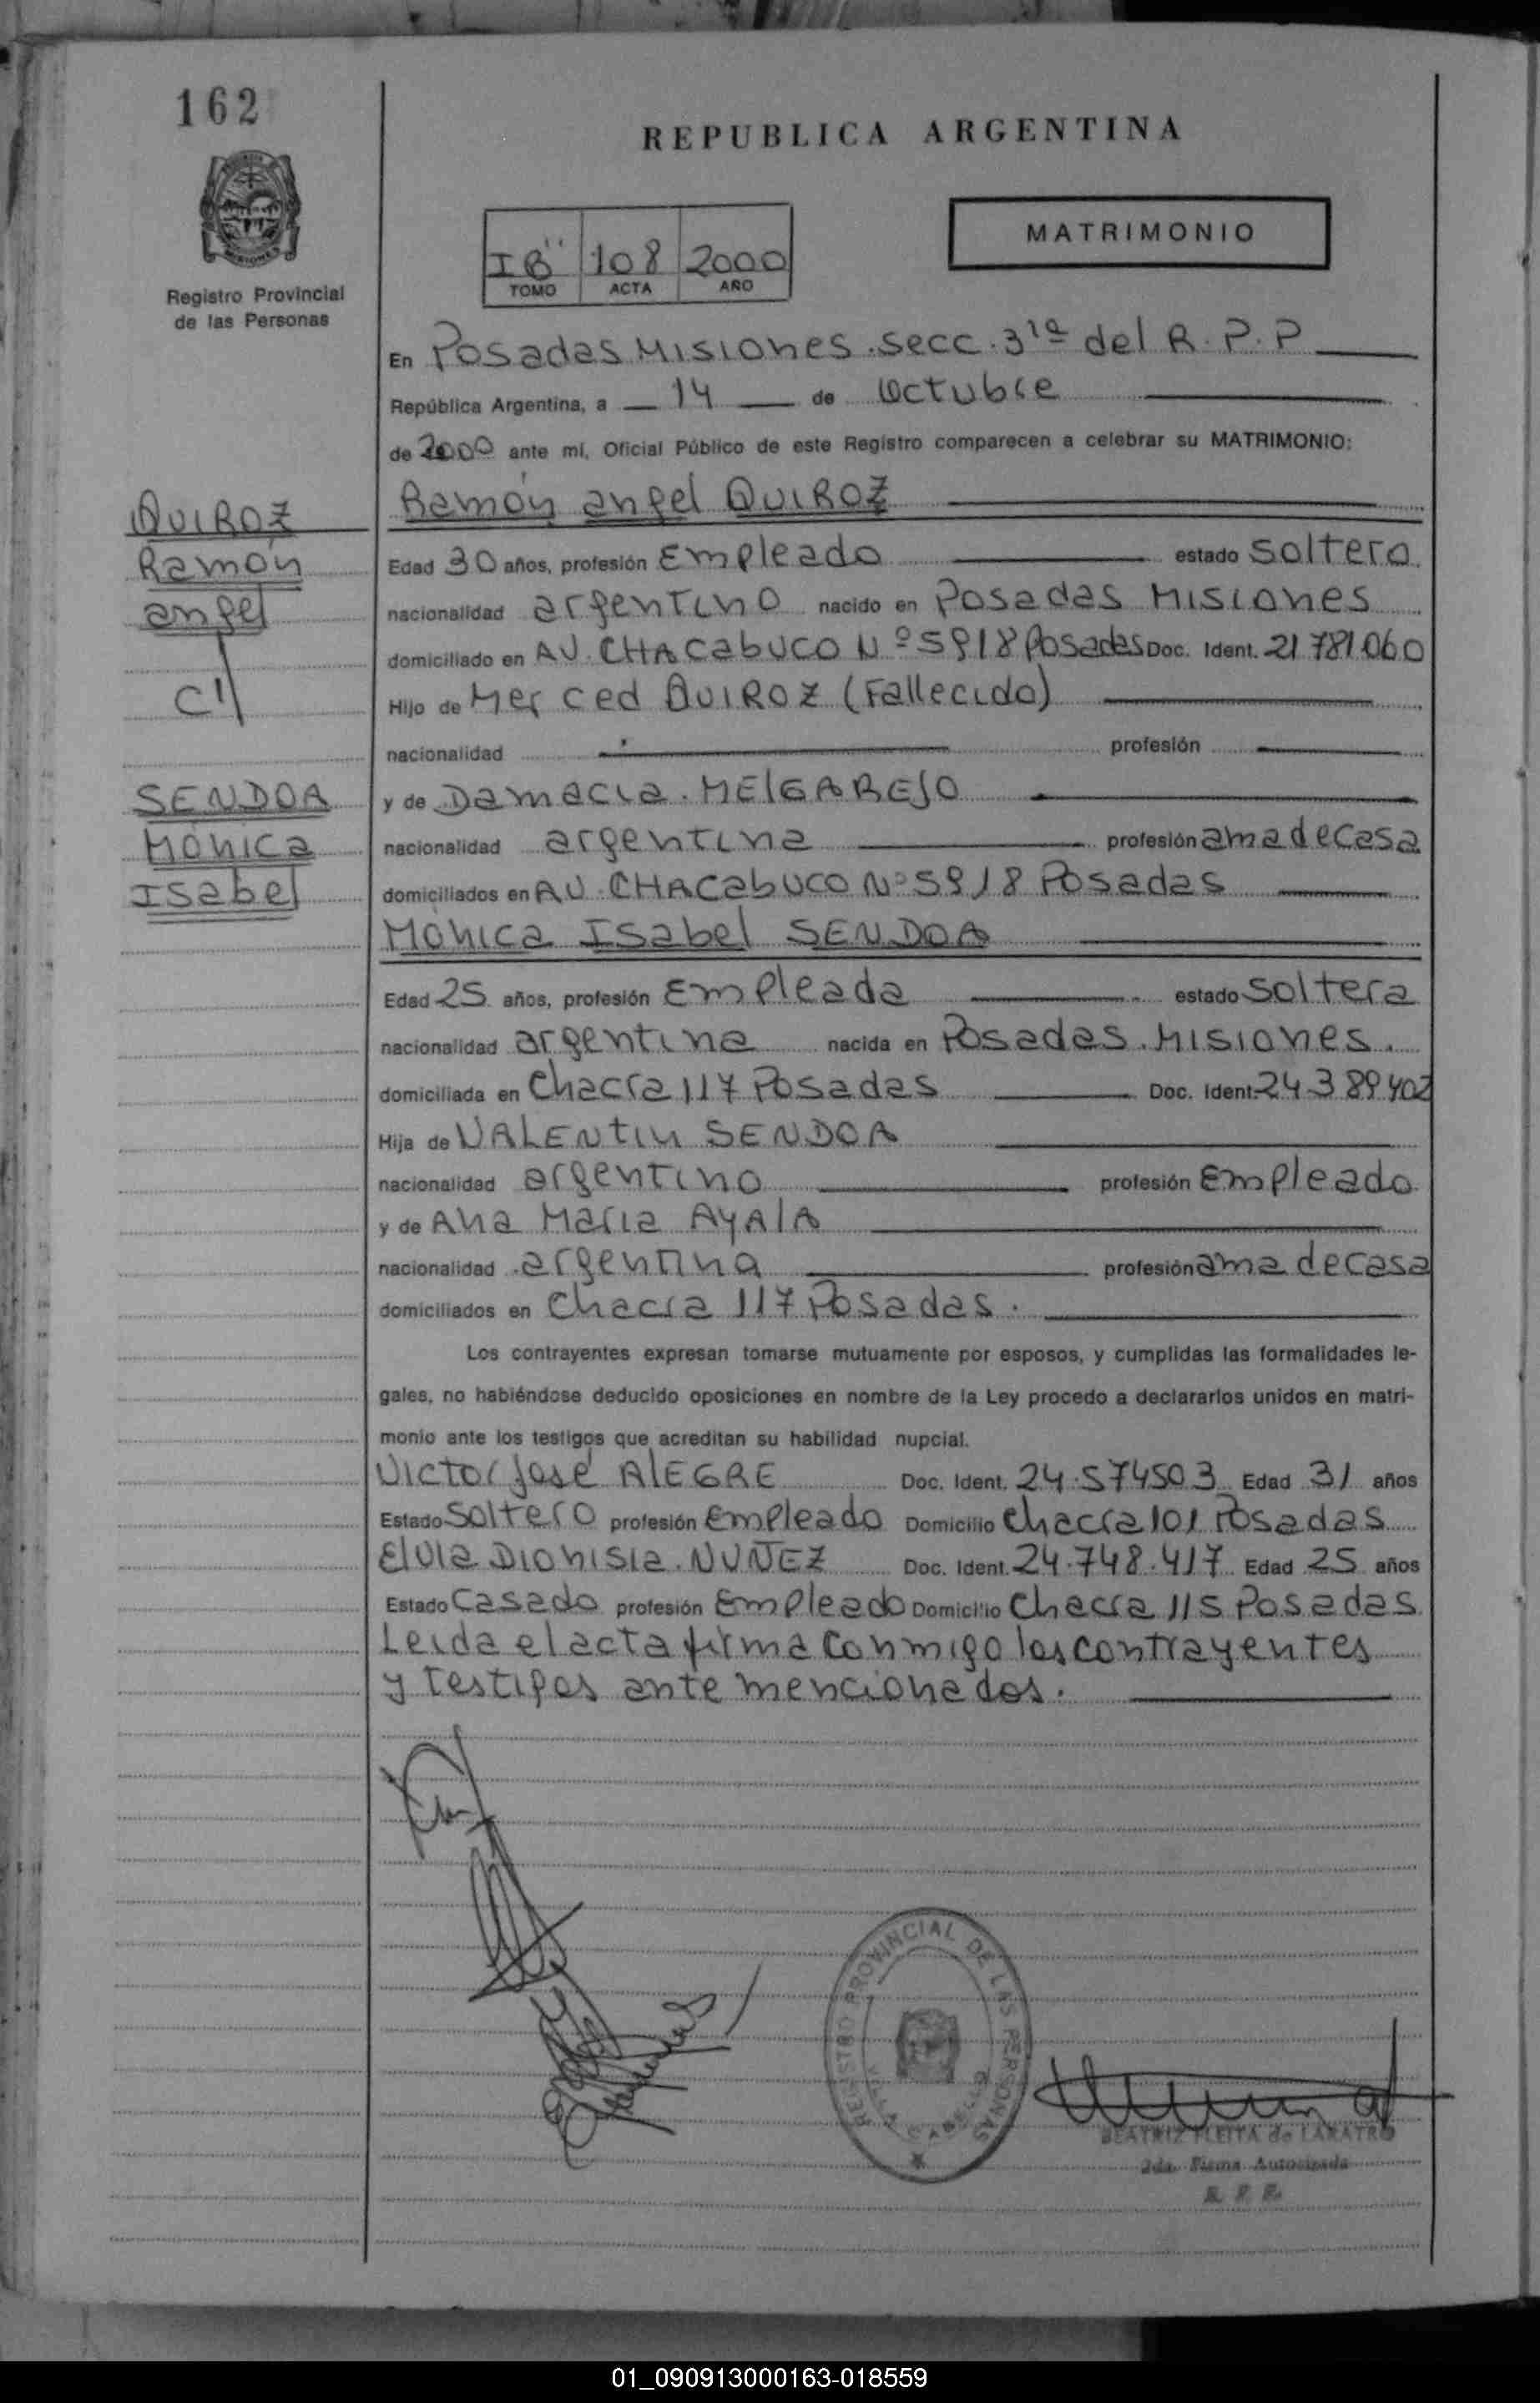 162
REPUBLICA ARGENTINA
MATRIMONIO
IB" 108 2000
TOMO ACTA AÑO
Registro Provincial
de las Personas
En Posadas Misiones. secc. 3ra del R.P.P
República Argentina, a 14 de Octubre
de 2000 ante mí, Oficial Público de este Registro comparecen a celebrar su MATRIMONIO:
QUIROZ
Ramón
angel
C1
SENDOA
Mónica
Isabel
Ramón angel QUIROZ
Edad 30 años, profesión Empleado estado soltero
nacionalidad argentino nacido en Posadas Misiones
domiciliado en AV. CHACabUCO Nº 5918 Posadas Doc. Ident. 21 781.060
Hijo de Merced QUIROZ (Fallecido)
nacionalidad profesión
y de Damacia. MElGAREJO
nacionalidad argentina profesión ama de casa
domiciliados en AV. CHACabUCO Nº 5918 Posadas
Mónica Isabel SENDOA
Edad 25 años, profesión Empleada estado soltera
nacionalidad argentina nacida en Posadas. Misiones.
domiciliada en Chacra 117 Posadas Doc. Ident. 24 389 402
Hija de VALENtin SENDOA
nacionalidad argentino profesión Empleado
y de Ana Maria AyAlA
nacionalidad argentina profesión ama de casa
domiciliados en Chacra 117 Posadas.
Los contrayentes expresan tomarse mutuamente por esposos, y cumplidas las formalidades le-
gales, no habiéndose deducido oposiciones en nombre de la Ley procedo a declararlos unidos en matri-
monio ante los testigos que acreditan su habilidad nupcial.
Victor José AlEGRE Doc. Ident. 24.574503 Edad 31 años
Estado Soltero profesión Empleado Domicilio Chacra 101 Posadas
Elvia Dionisia. NUÑEZ Doc. Ident. 24.748.417 Edad 25 años
Estado Casado profesión Empleado Domicilio Chacra 115 Posadas
Leida el acta firma conmigo los contrayentes
y testigos ante mencionados.
REGISTRO PROVINCIAL DE LAS PERSONAS
BEATRIZ FLEITA de LARATRO
2da. Firma Autorizada
R. P. P.
01_090913000163-018559